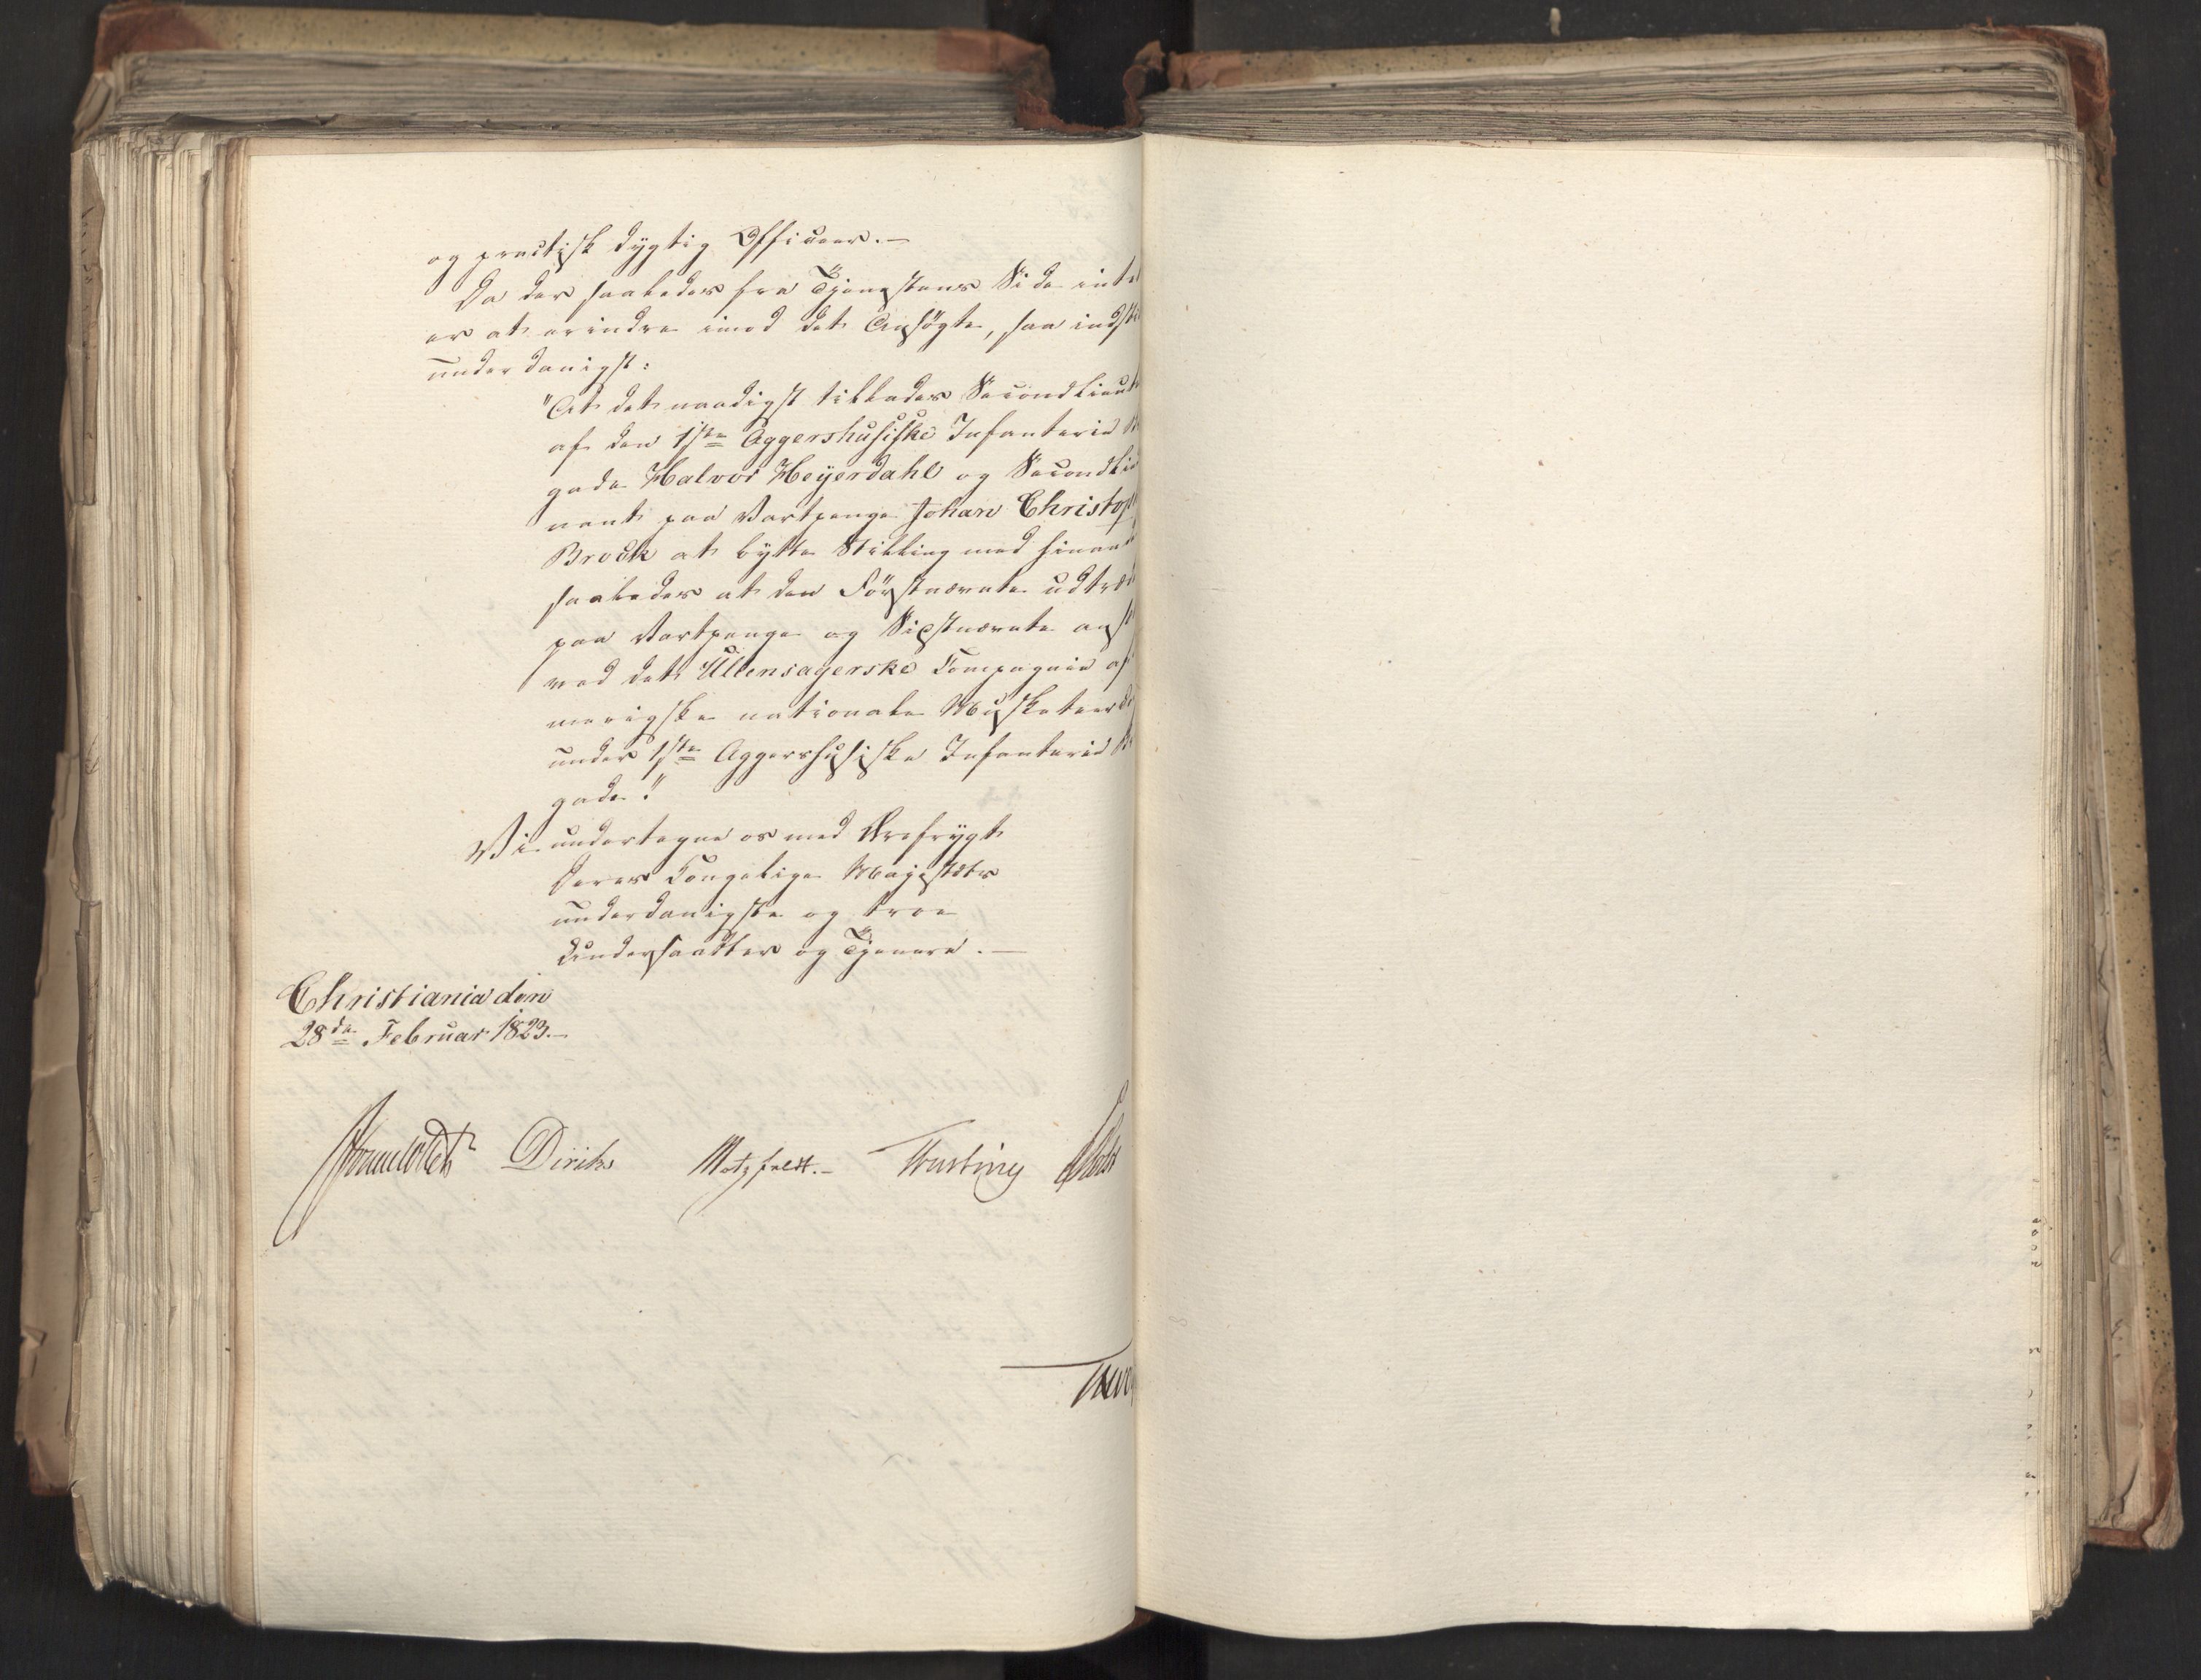 og practisk dygtig Officeer.—
Da der saaledes fra Tjenestens Side intet
er at erindre imod det Ansögte, saa indst
underdanigst:
"At det naadigst tillades Secondlieut
af den 1ste Aggershusiske Infanterie B
gade Halvor Heyerdahl og Secondlie
nant paa Vartpenge Johan Christop
Brock at bytte Stilling med hinand
saaledes at den Förstnævnte udtræd
paa Vartpenge og Sidstnævnte anst
ved det Ullensagerske Compagnie af
merigske nationale Musketeer
under 1ste Aggershusiske Infanterie B
gade."
Vi undertegne os med Ærefrygt
Deres Kongelige Majestæts
underdanigste og troe
Undersaatter og Tjenere.—
Christiania den
28de Februar 1823.—
Sommerfeldt Diriks Motzfeldt.— Treschow